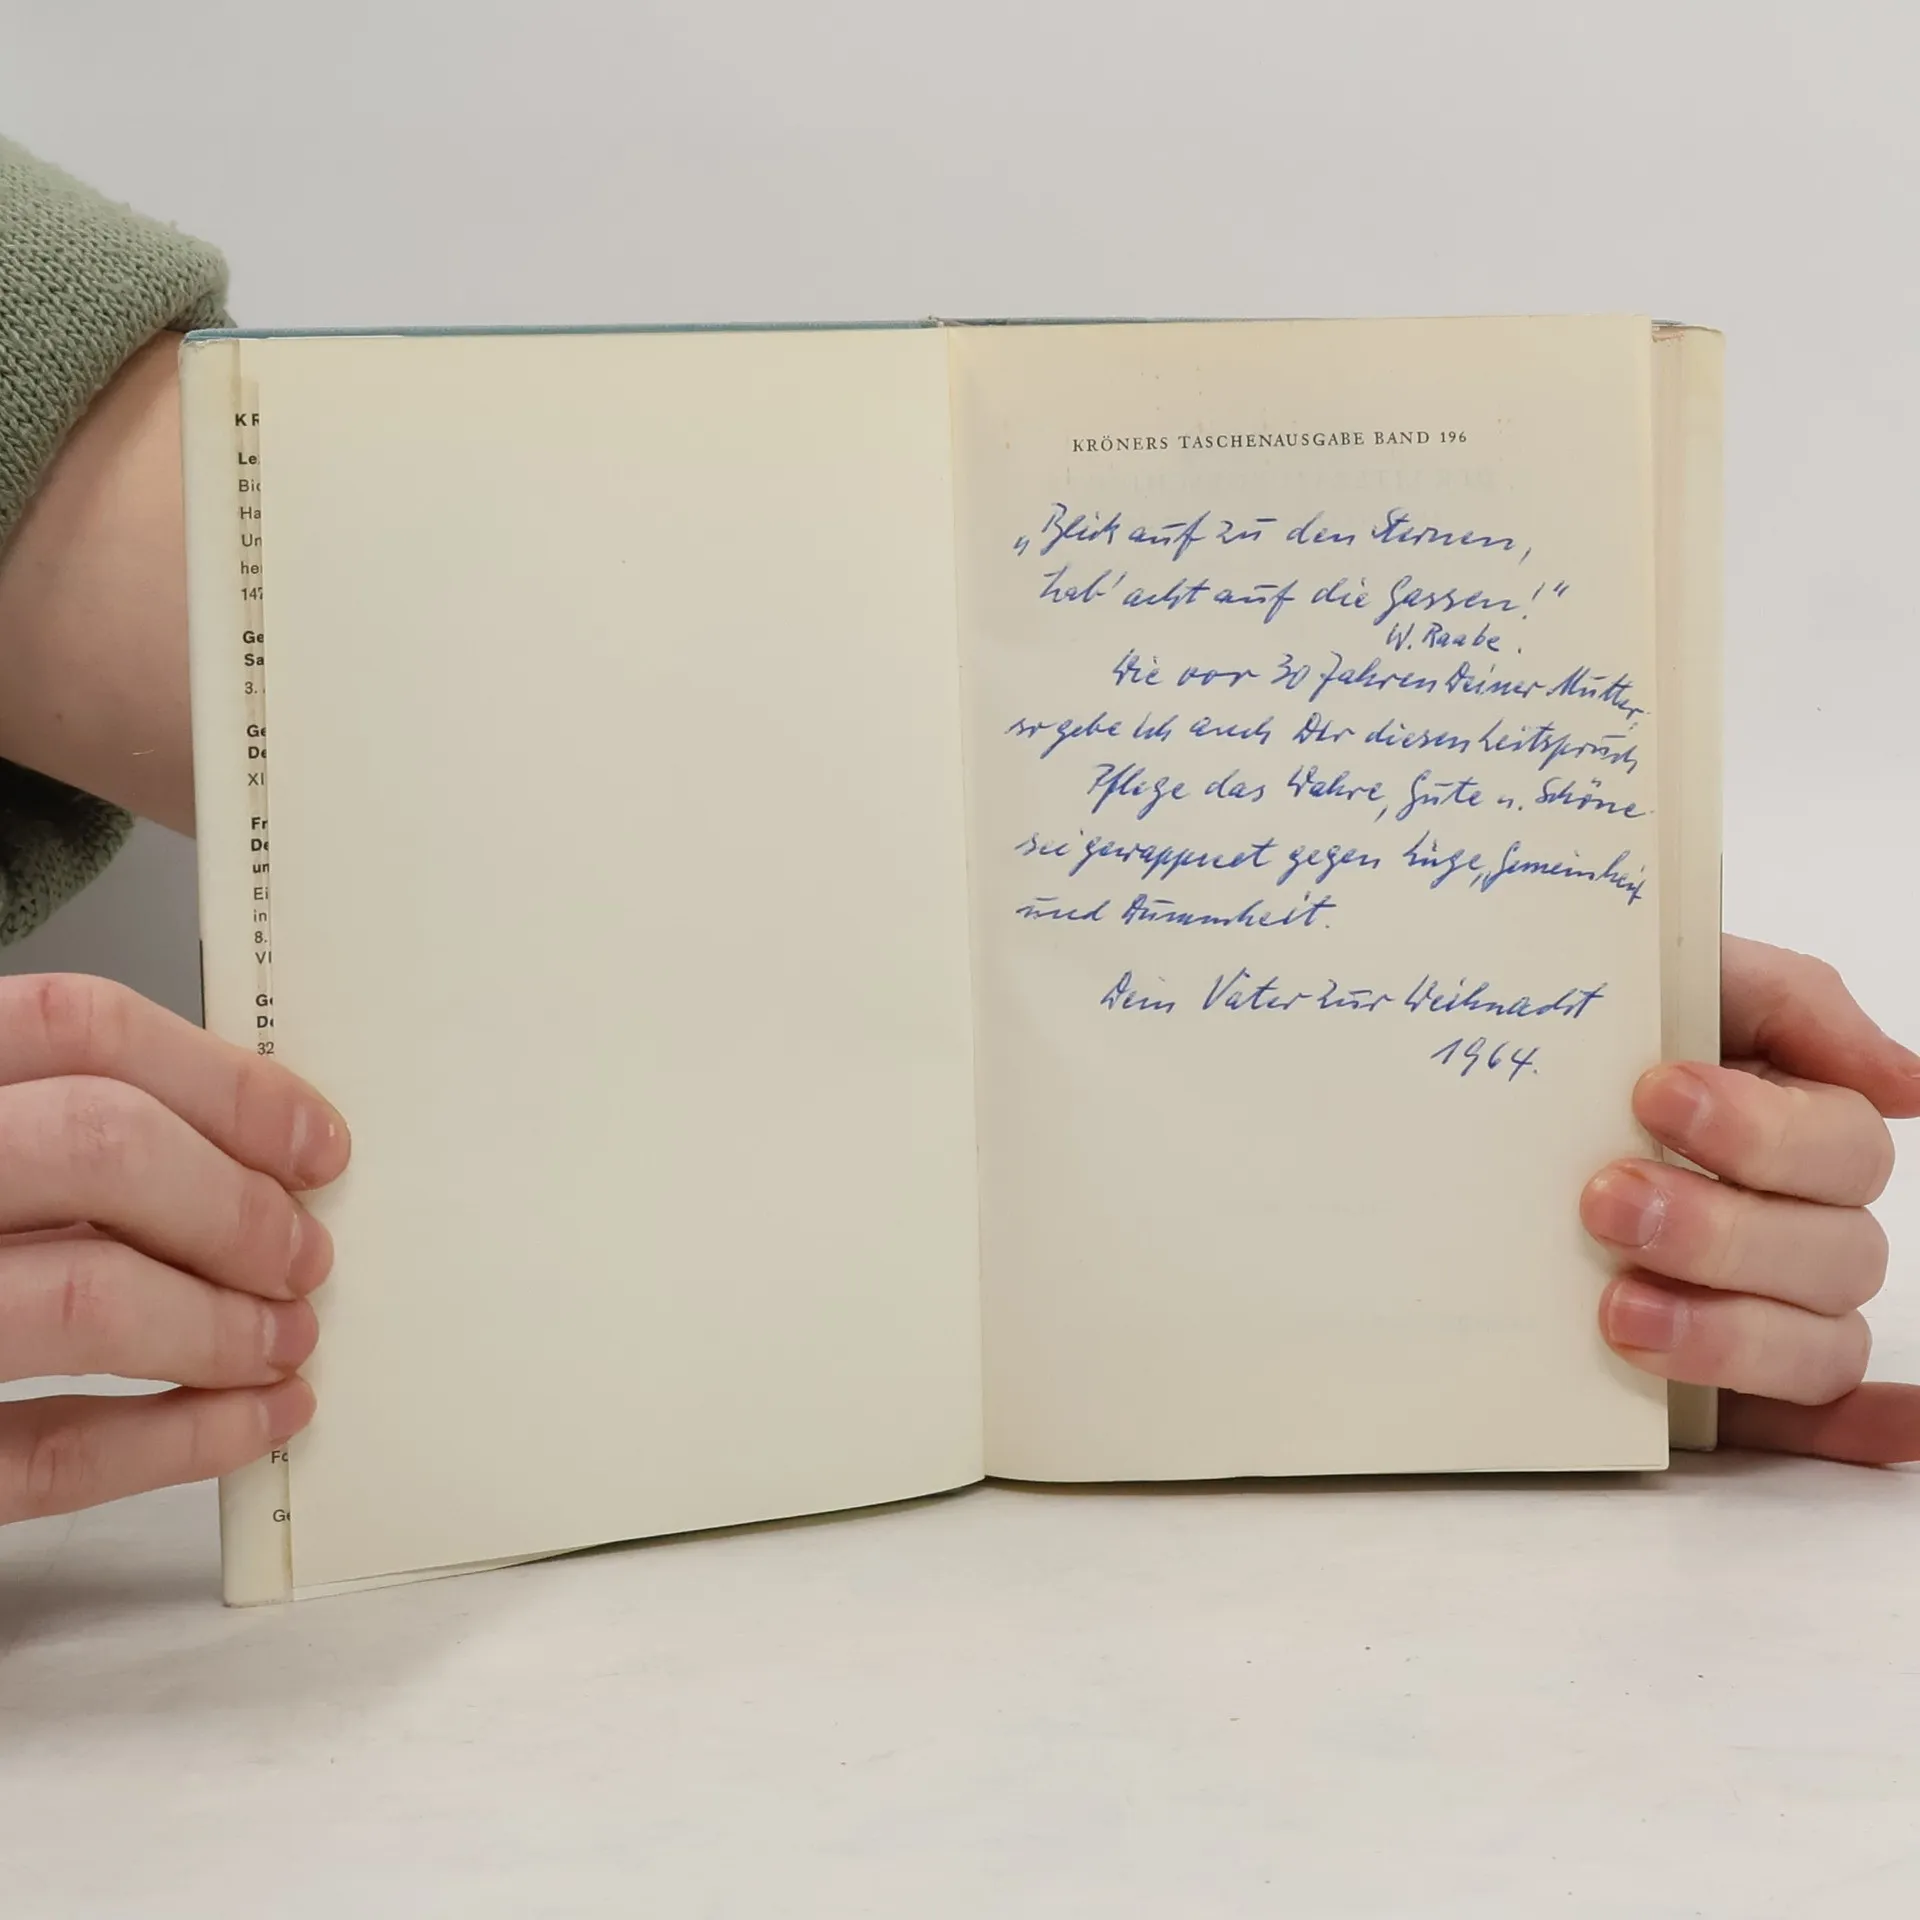 KR
Le
Bio
Ha
Un
he
147
Ge
Sa
3.
Ge
De
XI
Fr
De
un
Ei
in
8.
VI
Ge
De
32
Fo
Ge
KRÖNERS TASCHENAUSGABE BAND 196
„Blick auf zu den Sternen,
hab' acht auf die Gassen!“
W. Raabe.
Wie vor 30 Jahren Deiner Mutter,
so gebe ich auch Dir diesen Leitspruch
Pflege das Wahre, Gute u. Schöne
sei gewappnet gegen Lüge, Gemeinheit
und Dummheit.
Dein Vater zur Weihnacht
1964.